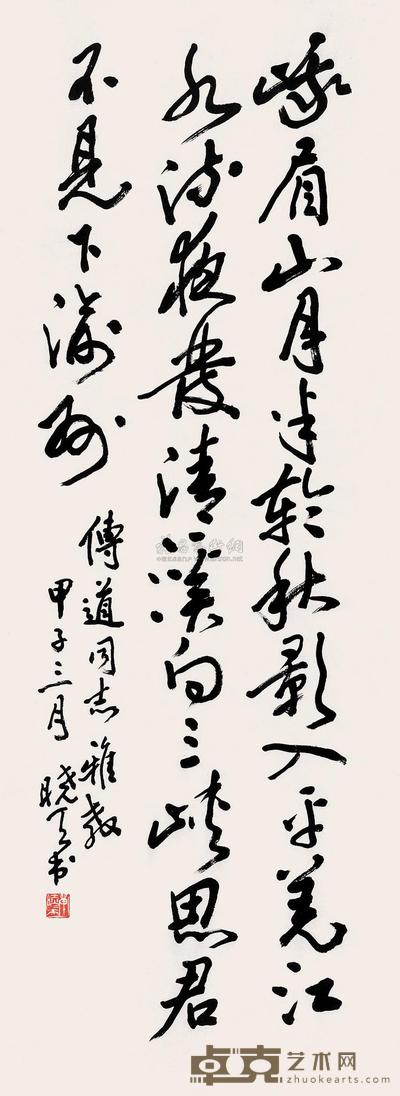 峨眉山月半轮秋影入平羌江
水流夜发清溪向三峡思君
不见下渝州
傳道同志雅教
甲子三月 晓天书
卓克艺术网
zhuokearts.com